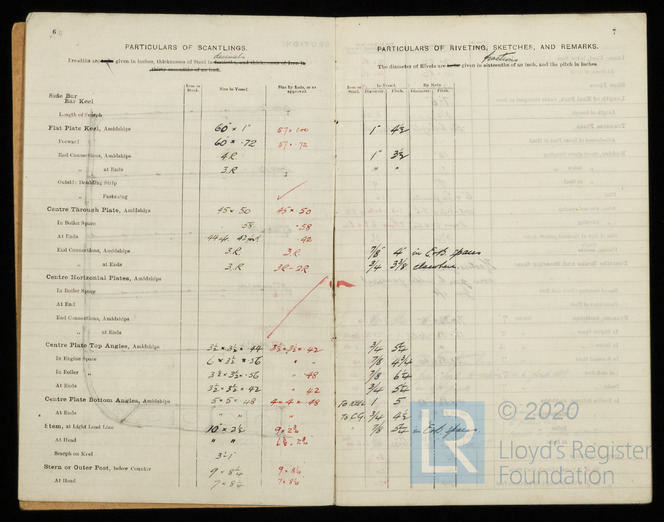 6
PARTICULARS OF SCANTLINGS.
decimals
Breadths are given in inches, thicknesses of Steel in
thirty seconds of an inch.
Iron or Steel. Size in Vessel. Size by Rule, or as approved.
Side Bar
Bar Keel
Length of Scarph
Flat Plate Keel, Amidships 60" × 1" 57 × 1.00
Forward 60 × .72 57 × .72
End Connections, Amidships 4.R
„ at Ends 3.R
Outside Doubling Strip
„ Fastening
Centre Through Plate, Amidships 45 × .50 45 × .50
In Boiler Space .58 .58
At Ends .42
End Connections, Amidships 3.R 3.R
„ at Ends 3.R 3R - 2R
Centre Horizontal Plates, Amidships
In Boiler Space
At End
End Connections, Amidships
„ at Ends
Centre Plate Top Angles, Amidships 3½ × 3½ × .44 3½ × 3½ × .42
In Engine Space 6 × 3½ × .56 „ „
In Boiler „ 3½ × 3½ × .56 „ .48
At Ends 3½ × 3½ × .42 .42
Centre Plate Bottom Angles, Amidships 5 × 5 × .48 4 × 4 × .48
At Ends „ „
Stem, at Light Load Line 10" × 2½
At Head „ „
Scarph on Keel
Stern or Outer Post, below Counter
At Head
7
PARTICULARS OF RIVETING, SKETCHES, AND REMARKS.
fractions
The diameter of Rivets are given in sixteenths of an inch, and the pitch in inches.
Iron or Steel. In Vessel. By Rule.
Diameter. Pitch. Diameter. Pitch.
1" 4½
1" 3½
„ „
7/8" 4" in E & B spaces
3/4 3 3/8 elsewhere
3/4 5¼
7/8 4¾
7/8 6¼
3/4 5¼
1 5
To C.G. 3/4 4½
„ 7/8 5¼ in E & B spaces
© 2020
LR
Lloyd's Register
Foundation